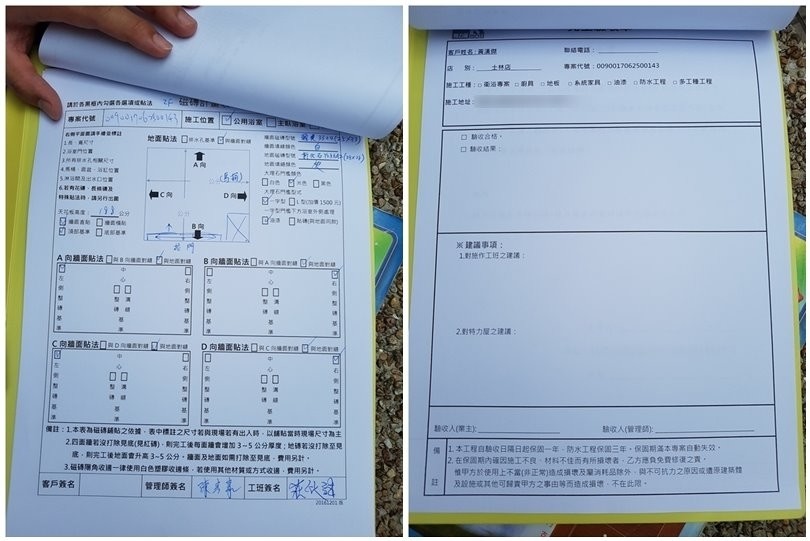 請於各黑框內勾選各選項或貼法 2F 磁磚計
專案代號 施工位置 公用浴室 主臥浴室
右側平面圖請手繪並標註
1.長、寬尺寸
2.浴室門位置
3.所有排水孔相關尺寸
4.馬桶、面盆、浴缸位置
5.淋浴間及出水口位置
6.若有花磚、長條磚及
特殊貼法時,請另行出圖
天花板高度: 公分
牆面直貼 牆面橫貼
頂部基準 底部基準
地面貼法 排水孔基準 與牆面對縫
A 向
C 向
D 向
公分
B 向
牆面磁磚型號
牆面填縫顏色 白
地面磁磚型號
地面填縫顏色
大理石門檻顏色
白色 米色 黑色
大理石門檻型式
一字型 L型(加價1500元)
一字型門檻下方浴室外側處理
淡漆 貼磚(與地面同款)
A 向牆面貼法 與 B 向牆面對縫 與地面對縫
B 向牆面貼法 與 A 向牆面對縫 與地面對縫
左側整磚基準
中心
整磚 溝縫
基準
右側整磚基準
左側整磚基準
中心
整磚 溝縫
基準
右側整磚基準
C 向牆面貼法 與 D 向牆面對縫 與地面對縫
D 向牆面貼法 與 C 向牆面對縫 與地面對縫
左側整磚基準
中心
整磚 溝縫
基準
右側整磚基準
左側整磚基準
中心
整磚 溝縫
基準
右側整磚基準
備註:1.本表為磁磚鋪貼之依據,表中標註之尺寸若與現場若有出入時,以鋪貼當時現場尺寸為主
2.四面牆若沒打除見底(見紅磚),則完工後每面牆會增加 3~5 公分厚度;地磚若沒打除至見
底,則完工後地面會升高 3~5 公分。牆面及地面如需打除至見底,費用另計。
3.磁磚陽角收邊一律使用白色塑膠收邊條,若使用其他材質或方式收邊,費用另計。
客戶簽名 管理師簽名 工班簽名
20161201 版
客戶姓名:黃漢傑 聯絡電話:
店 別: 士林店 專案代號:0090017062500143
施工工種:□衛浴專案 □廚具 □地板 □系統家具 □油漆 □防水工程 □多工種工程
施工地址:
□ 驗收合格。
□ 驗收結果:
※ 建議事項:
1.對施作工班之建議:
2.對特力屋之建議:
驗收人(業主): 驗收人(管理師):
備註
1.本工程自驗收日隔日起保固一年,防水工程保固三年。保固期滿本專案自動失效。
2.在保固期內確因施工不良、材料不佳而有所損壞者,乙方應負免費修復之責。
惟甲方於使用上不當(非正常)造成損壞及屬消耗品除外,與不可抗力之原因或遭原建築體
及設施或其他可歸責甲方之事由等而造成損壞,不在此限。